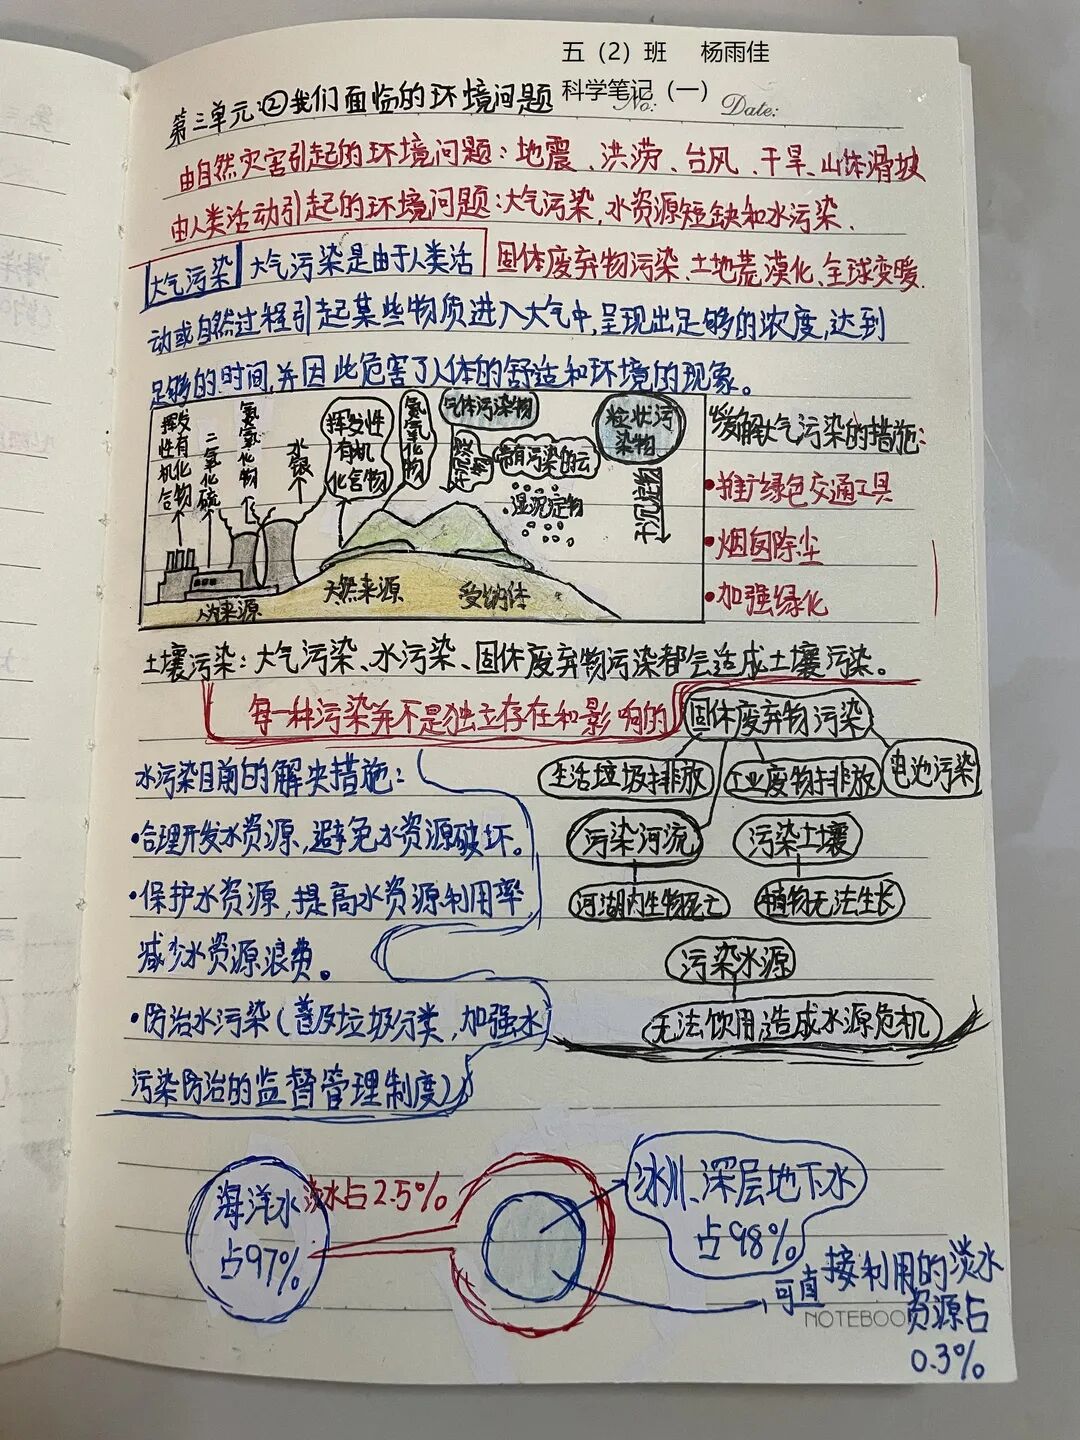 五（2）班 杨雨佳
科学笔记（一）
No:
Date:
第三单元:②我们面临的环境问题
由自然灾害引起的环境问题：地震、洪涝、台风、干旱、山体滑坡
由人类活动引起的环境问题：大气污染,水资源短缺和水污染、
固体废弃物污染、土地荒漠化、全球变暖.
大气污染 大气污染是由于人类活
动或自然过程引起某些物质进入大气中,呈现出足够的浓度,达到
足够的时间,并因此危害了人体的舒适和环境的现象。
挥发性有机化合物
二氧化硫
氮氧化物
水银
挥发性有机化合物
氮氧化物
气体污染物
带有污染的云
湿沉淀物
粒状污染物
干沉淀物
人为来源
天然来源
受纳体
缓解大气污染的措施:
•推广绿色交通工具
•烟囱除尘
•加强绿化
土壤污染：大气污染、水污染、固体废弃物污染都会造成土壤污染。
每一种污染并不是独立存在和影响的
固体废弃物污染
生活垃圾排放
工业废物排放
电池污染
污染河流
污染土壤
河湖内生物死亡
植物无法生长
污染水源
无法饮用,造成水源危机
水污染目前的解决措施：
•合理开发水资源,避免水资源破坏。
•保护水资源,提高水资源利用率
减少水资源浪费。
•防治水污染(普及垃圾分类,加强水
污染防治的监督管理制度)
海洋水
占97%
淡水占2.5%
冰川、深层地下水
占98%
可直接利用的淡水
资源占
0.3%